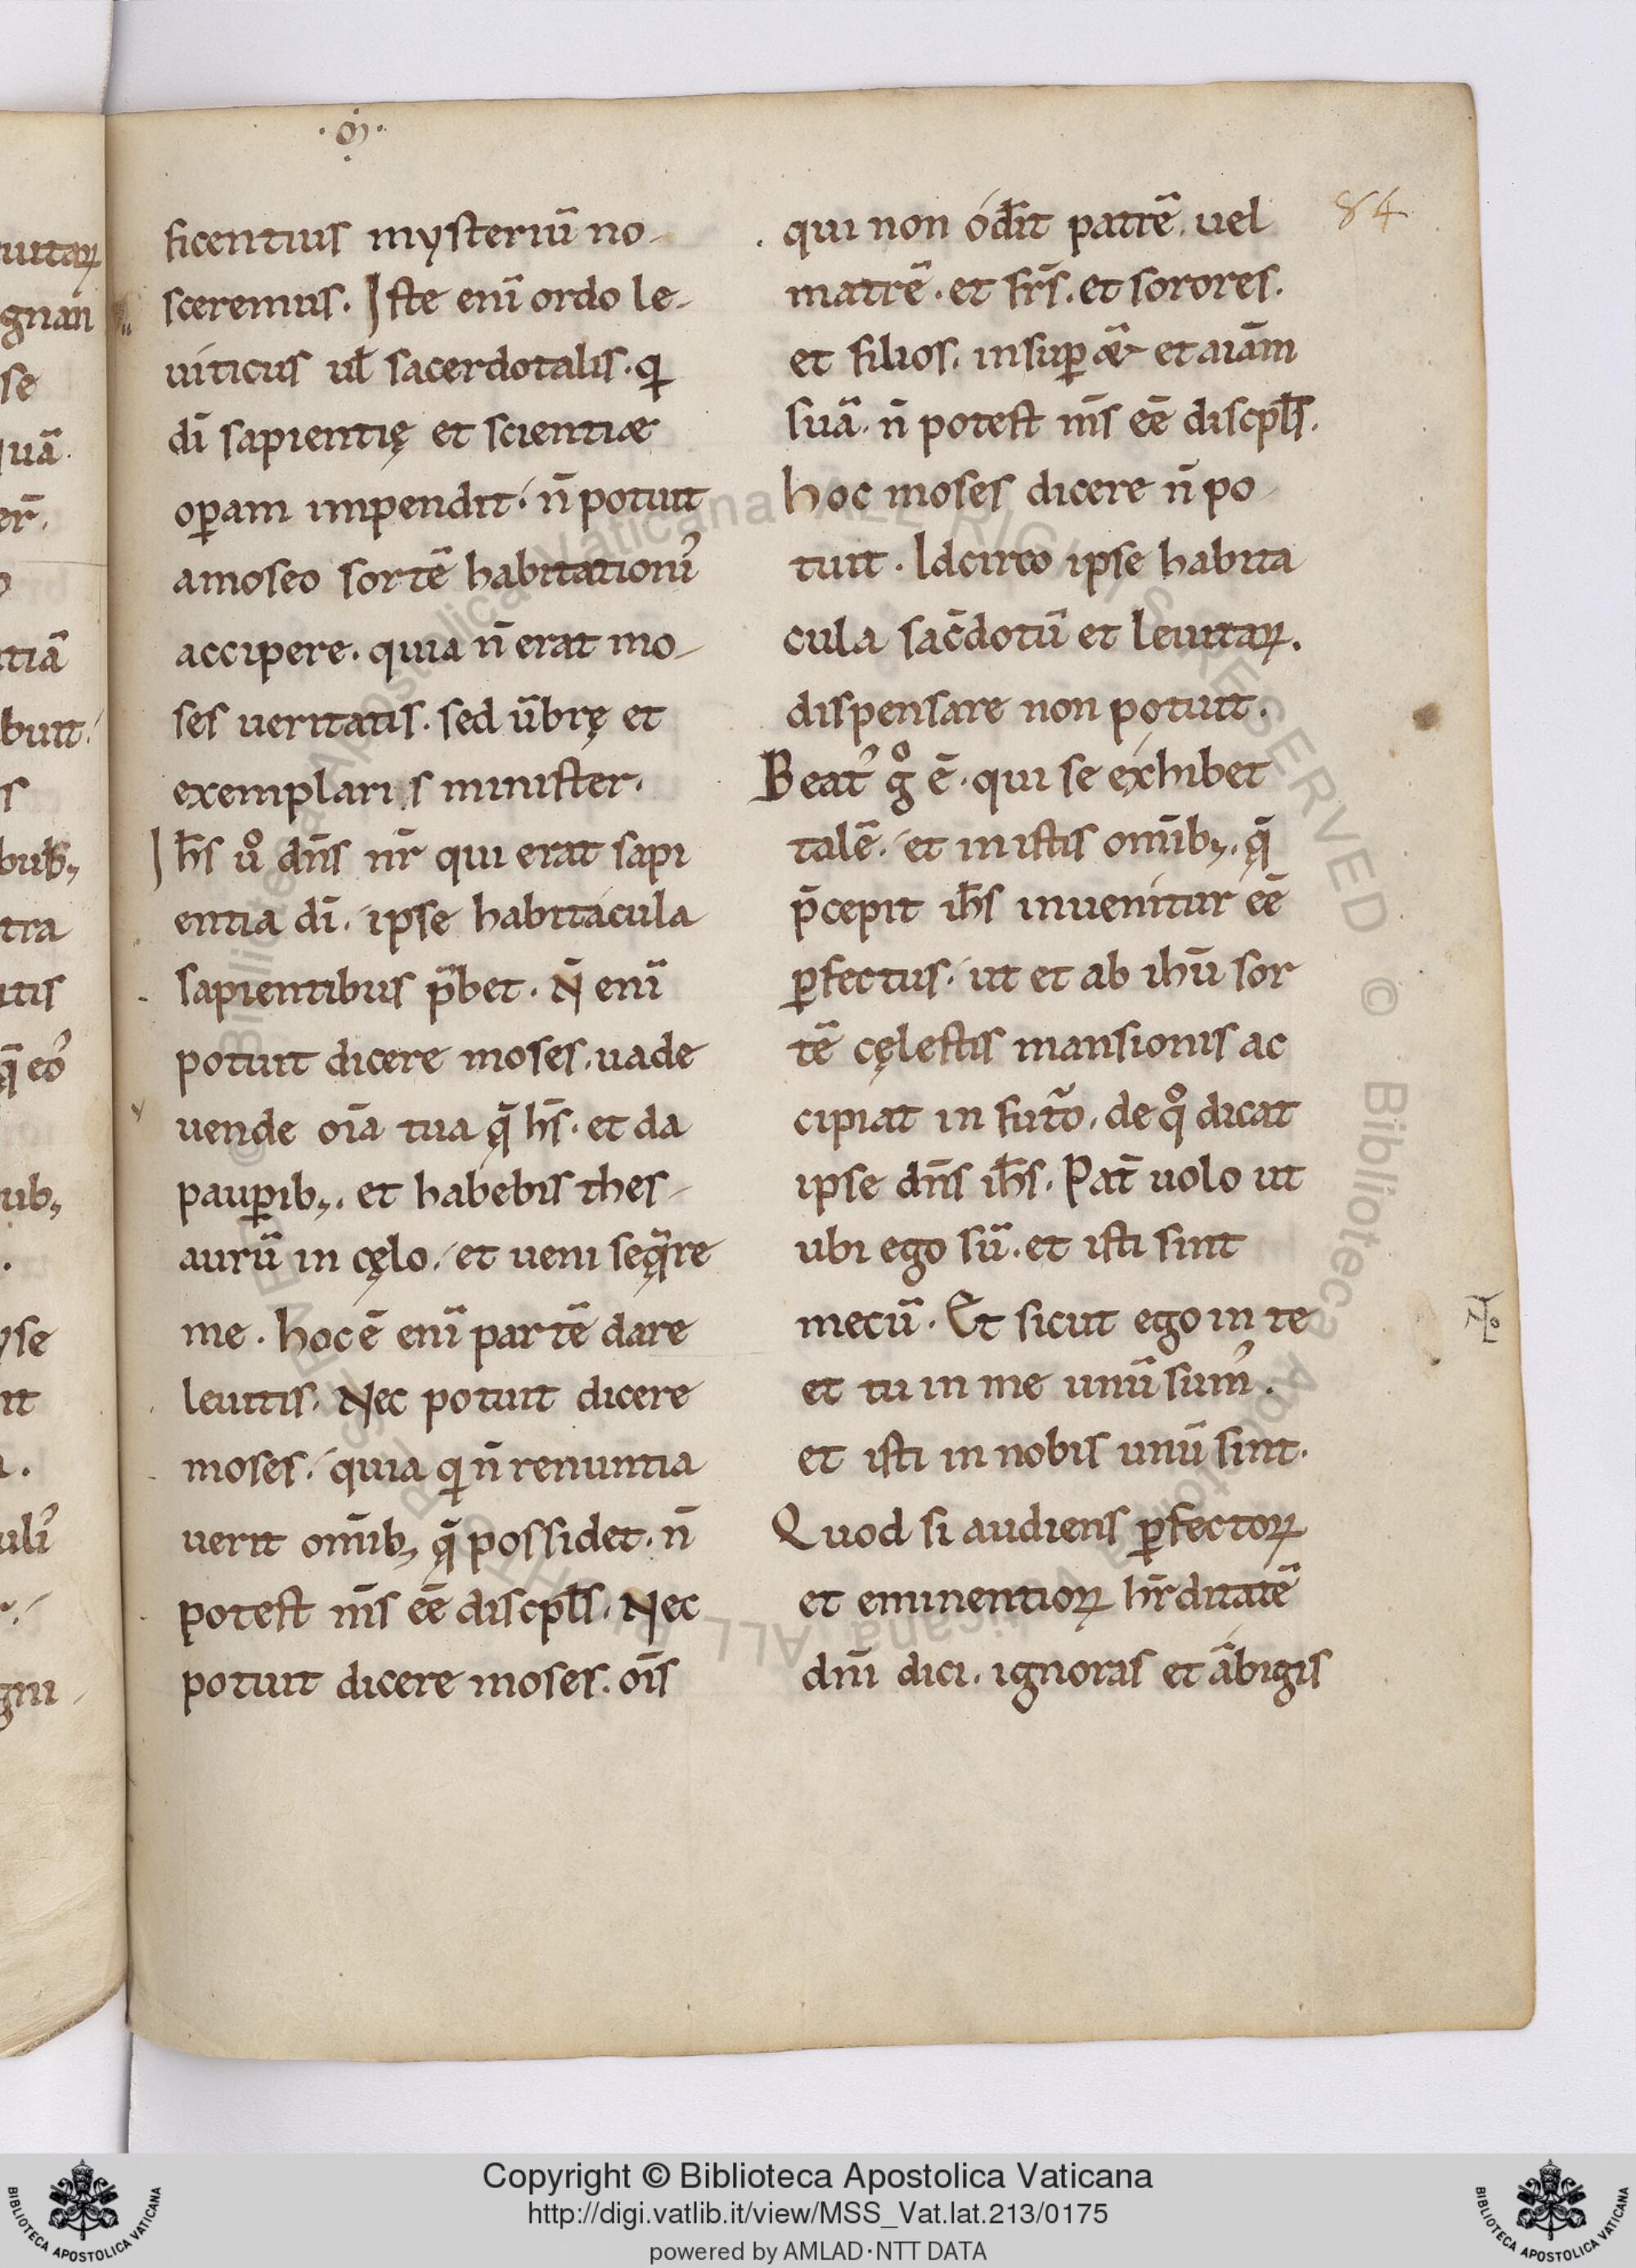 ficentius mysteriū no-
sceremus. Iste enī ordo le-
uiticus ul̄ sacerdotalis. q
dī sapientię et scientiæ
oꝑam impendit. n̄ potuit
amoseo sortē habitationi᾽
accipere. quia n̄ erat mo-
ses ueritatis. sed ūbrę et
exemplaris minister.
Ih̄s uͦ dn̄s nr̄ qui erat sapi
entia dī. ipse habitacula
sapientibus p̄bet. N̄ enī
potuit dicere moses. uade
uende oīa tua q̄ hs̄. et da
pauꝑib;. et habebis thes-
aurū in cęlo. et ueni seq̄re
me. hoc ē enī partē dare
leuitis. Nec potuit dicere
moses. quia q n̄ renuntia
uerit om̄ib; q̄ possidet. n̄
potest m̄s eē discpl̄s. Nec
potuit dicere moses. oīs
qui non od̄it patrē. uel
matrē. et fr̄s. et sorores.
et filios. insuꝑ ǣ et aīam
suā. n̄ potest m̄s eē discpl̄s.
hoc moses dicere n̄ po-
tuit. Idcirco ipse habita
cula sac̄dotū et leuitaꝝ.
dispensare non potuit.
Beat᾽ gͦ ē. qui se exhibet
talē. et in istis om̄ib;. q̄
p̄cepit ih̄s inuenitur eē
ꝑfectus. ut et ab ihū sor
tē cęlestis mansionis ac
cipiat in fut̄o. de qͦ dicat
ipse dn̄s ih̄s. Pat̄ uolo ut
ubi ego sū. et isti sint
mecū. Et sicut ego in te
et tu in me unū sum᾽.
et isti in nobis unū sint.
Quod si audiens ꝑfectoꝝ
et eminentioꝝ hr̄ditatē
dn̄i dici. ignoras et ābigis
84
Copyright © Biblioteca Apostolica Vaticana
http://digi.vatlib.it/view/MSS_Vat.lat.213/0175
powered by AMLAD·NTT DATA
BIBLIOTECA APOSTOLICA VATICANA
BIBLIOTECA APOSTOLICA VATICANA